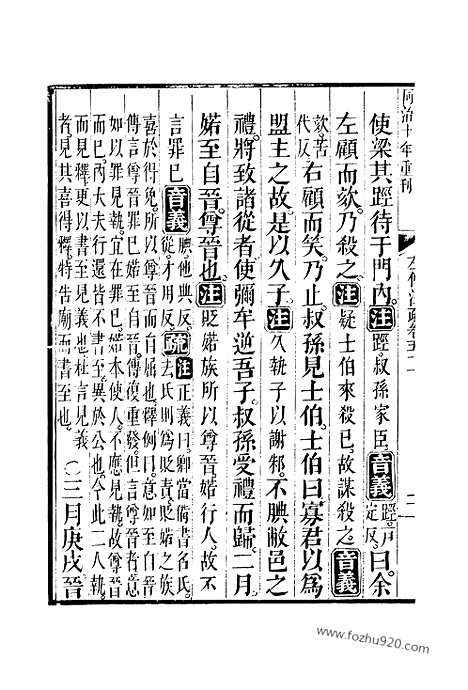 同治十年重刊 左傳注疏卷五十一 二
使梁其踁待于門內。注踁。叔孫家臣。音義踁戶定反。曰余
左顧而欬。乃殺之。注疑士伯來殺已。故謀殺之。音義
欬苦代反右顧而笑。乃止。叔孫見士伯。士伯曰寡君以爲
盟主之故。是以久子。注久執子以謝邾。不腆敝邑之
禮。將致諸從者。使彌牟逆吾子。叔孫受禮而歸。二月。
婼至自晉。尊晉也。注貶婼族所以尊晉。婼行人。故不
言罪已音義腆。他典反。從。才用反。疏注正義曰。卿當備書名氏。去氏則爲貶責。貶婼之族
喜於得免。所以尊晉而自屈也。釋例曰。意如至自晉
傳言尊晉罪已。婼至自晉傳復重發。但言尊晉者。意
如以罪見執。宜在罪已。婼本使人。不應見執。故尊晉
而已。內大夫行還皆不書至。異於公也。今此二人執
而見釋。更以書至見義也。杜言見義
者。見其喜得釋。特告廟而書至也。○三月庚戌晉
www.fozhu920.com